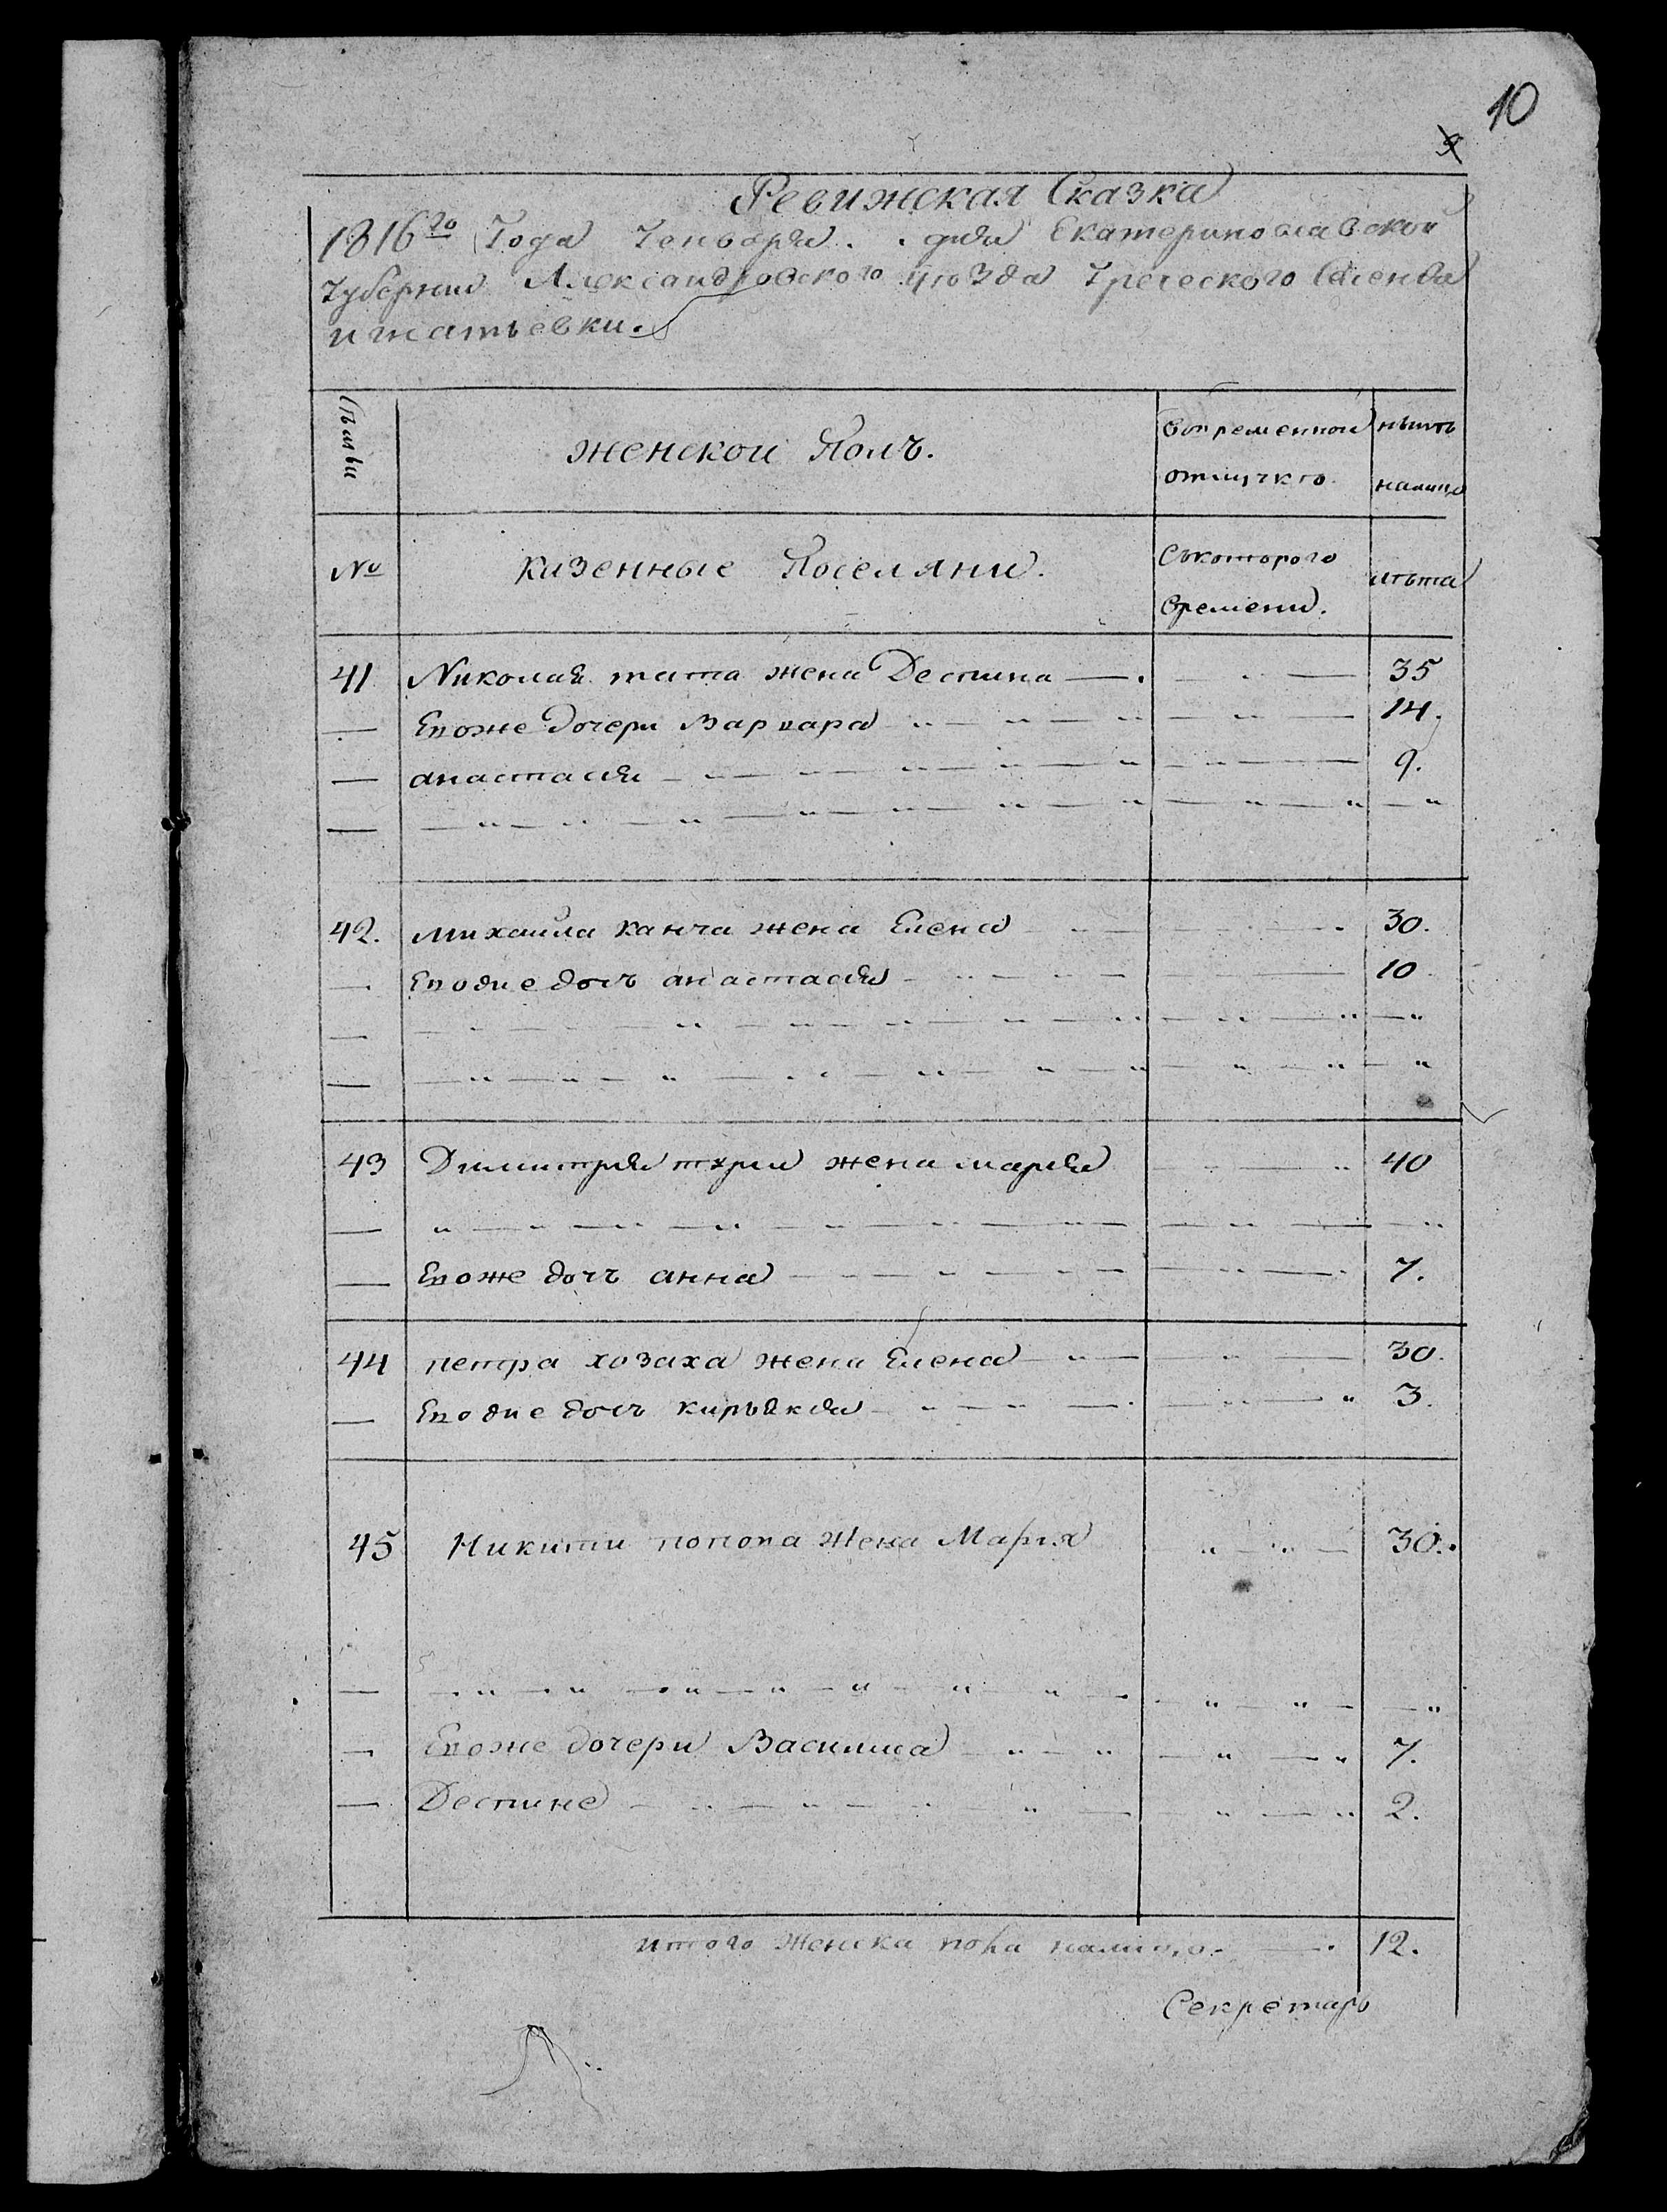 10
9
Ревижская Сказка
1816го Года Генваря . . дня Екатеринославской
Губернии Александровского уѣзда Греческого Селенія
игнатьевки.
Сѣмьи
женской Полъ.
Вовременной
отлучкѣ
нынѣ
налицо
№
казенные Поселяни.
Съкоторого
времени.
лѣта
41 Николая тата жена Деспина 35
Евоже дочери Варвара 14.
анастасія 9.
42. михаила канча жена Елена 30.
Евоже дочь анастасія 10
43 Димитрія жена марія 40
Евоже дочь анна 7.
44 петра хозаха жена Елена 30.
Евоже дочь кирьякія 3.
45 Никити попова жена Марія 30.
Евоже дочери Василиса 7.
Деспине 2.
итого женска пола налицо. 12.
Секретарь